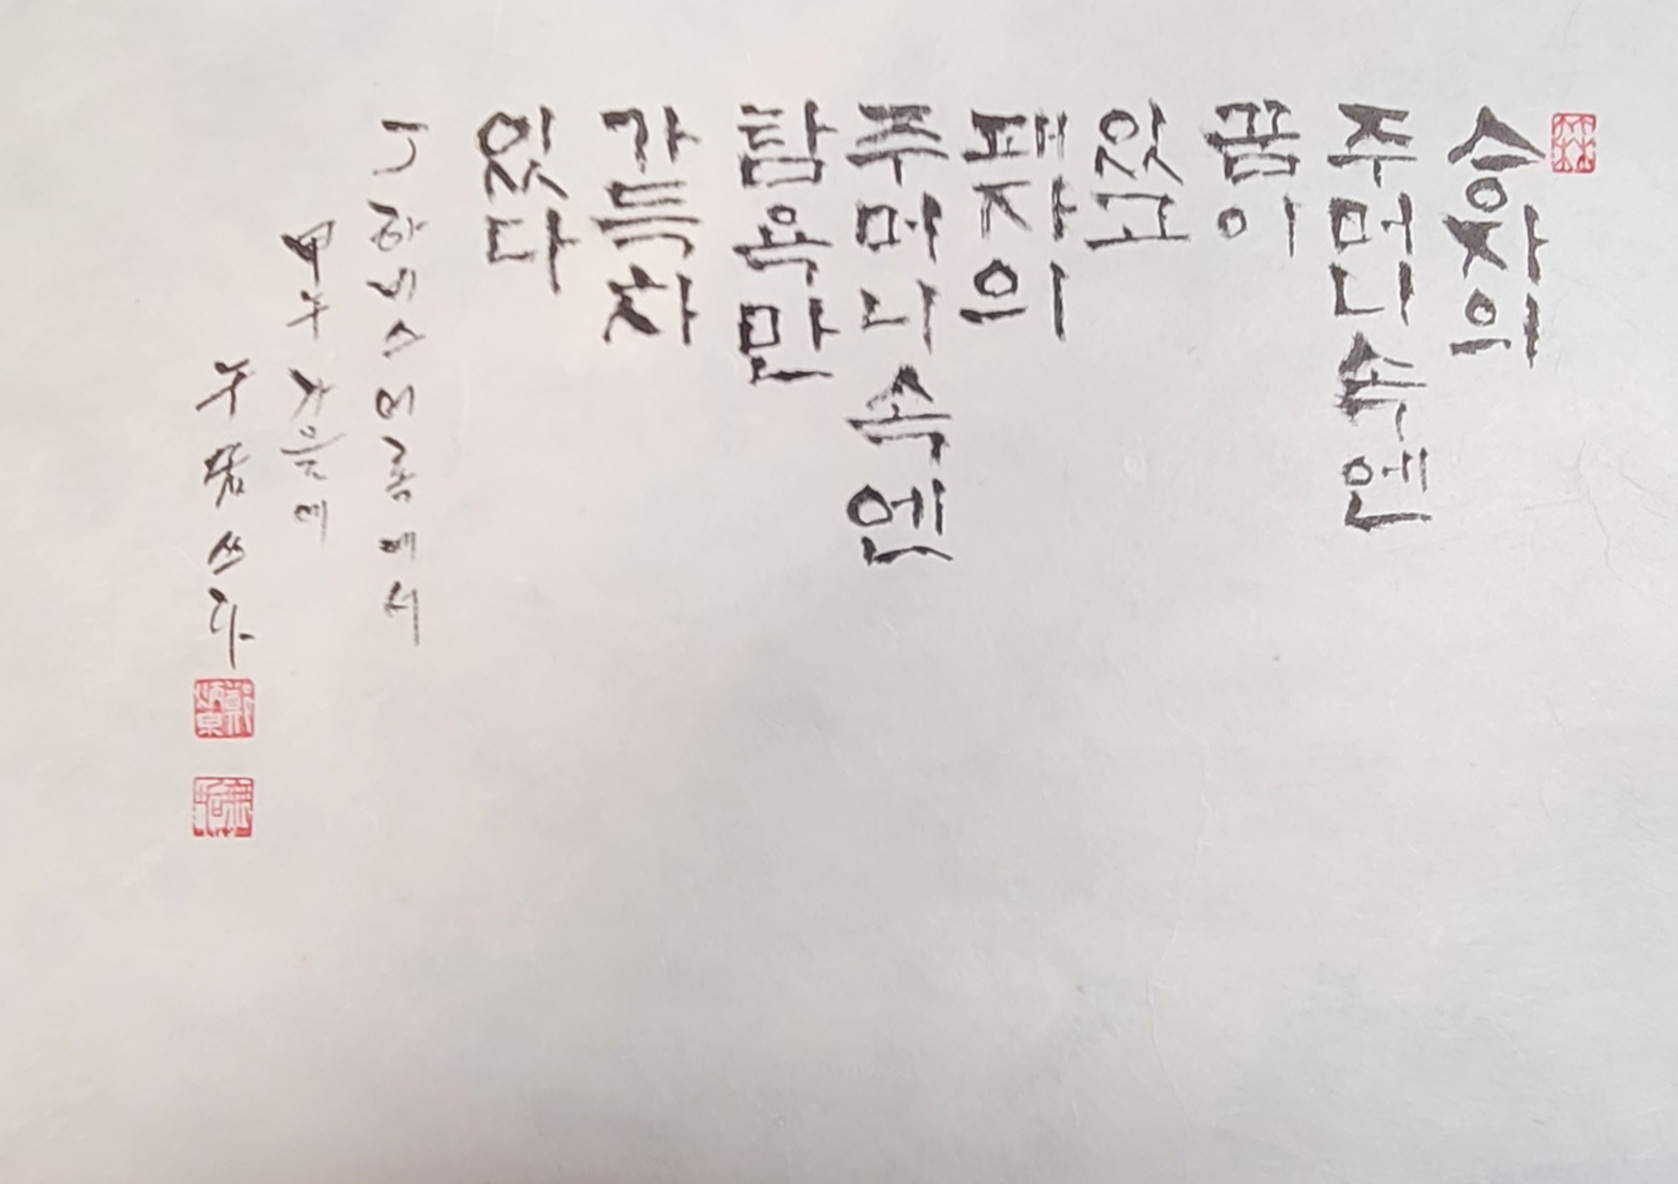 승자의
주머니 속엔
꿈이
있고
패자의
주머니 속엔
탐욕만
가득차
있다
J 하비스 어록에서
甲午 가을에
쓰다